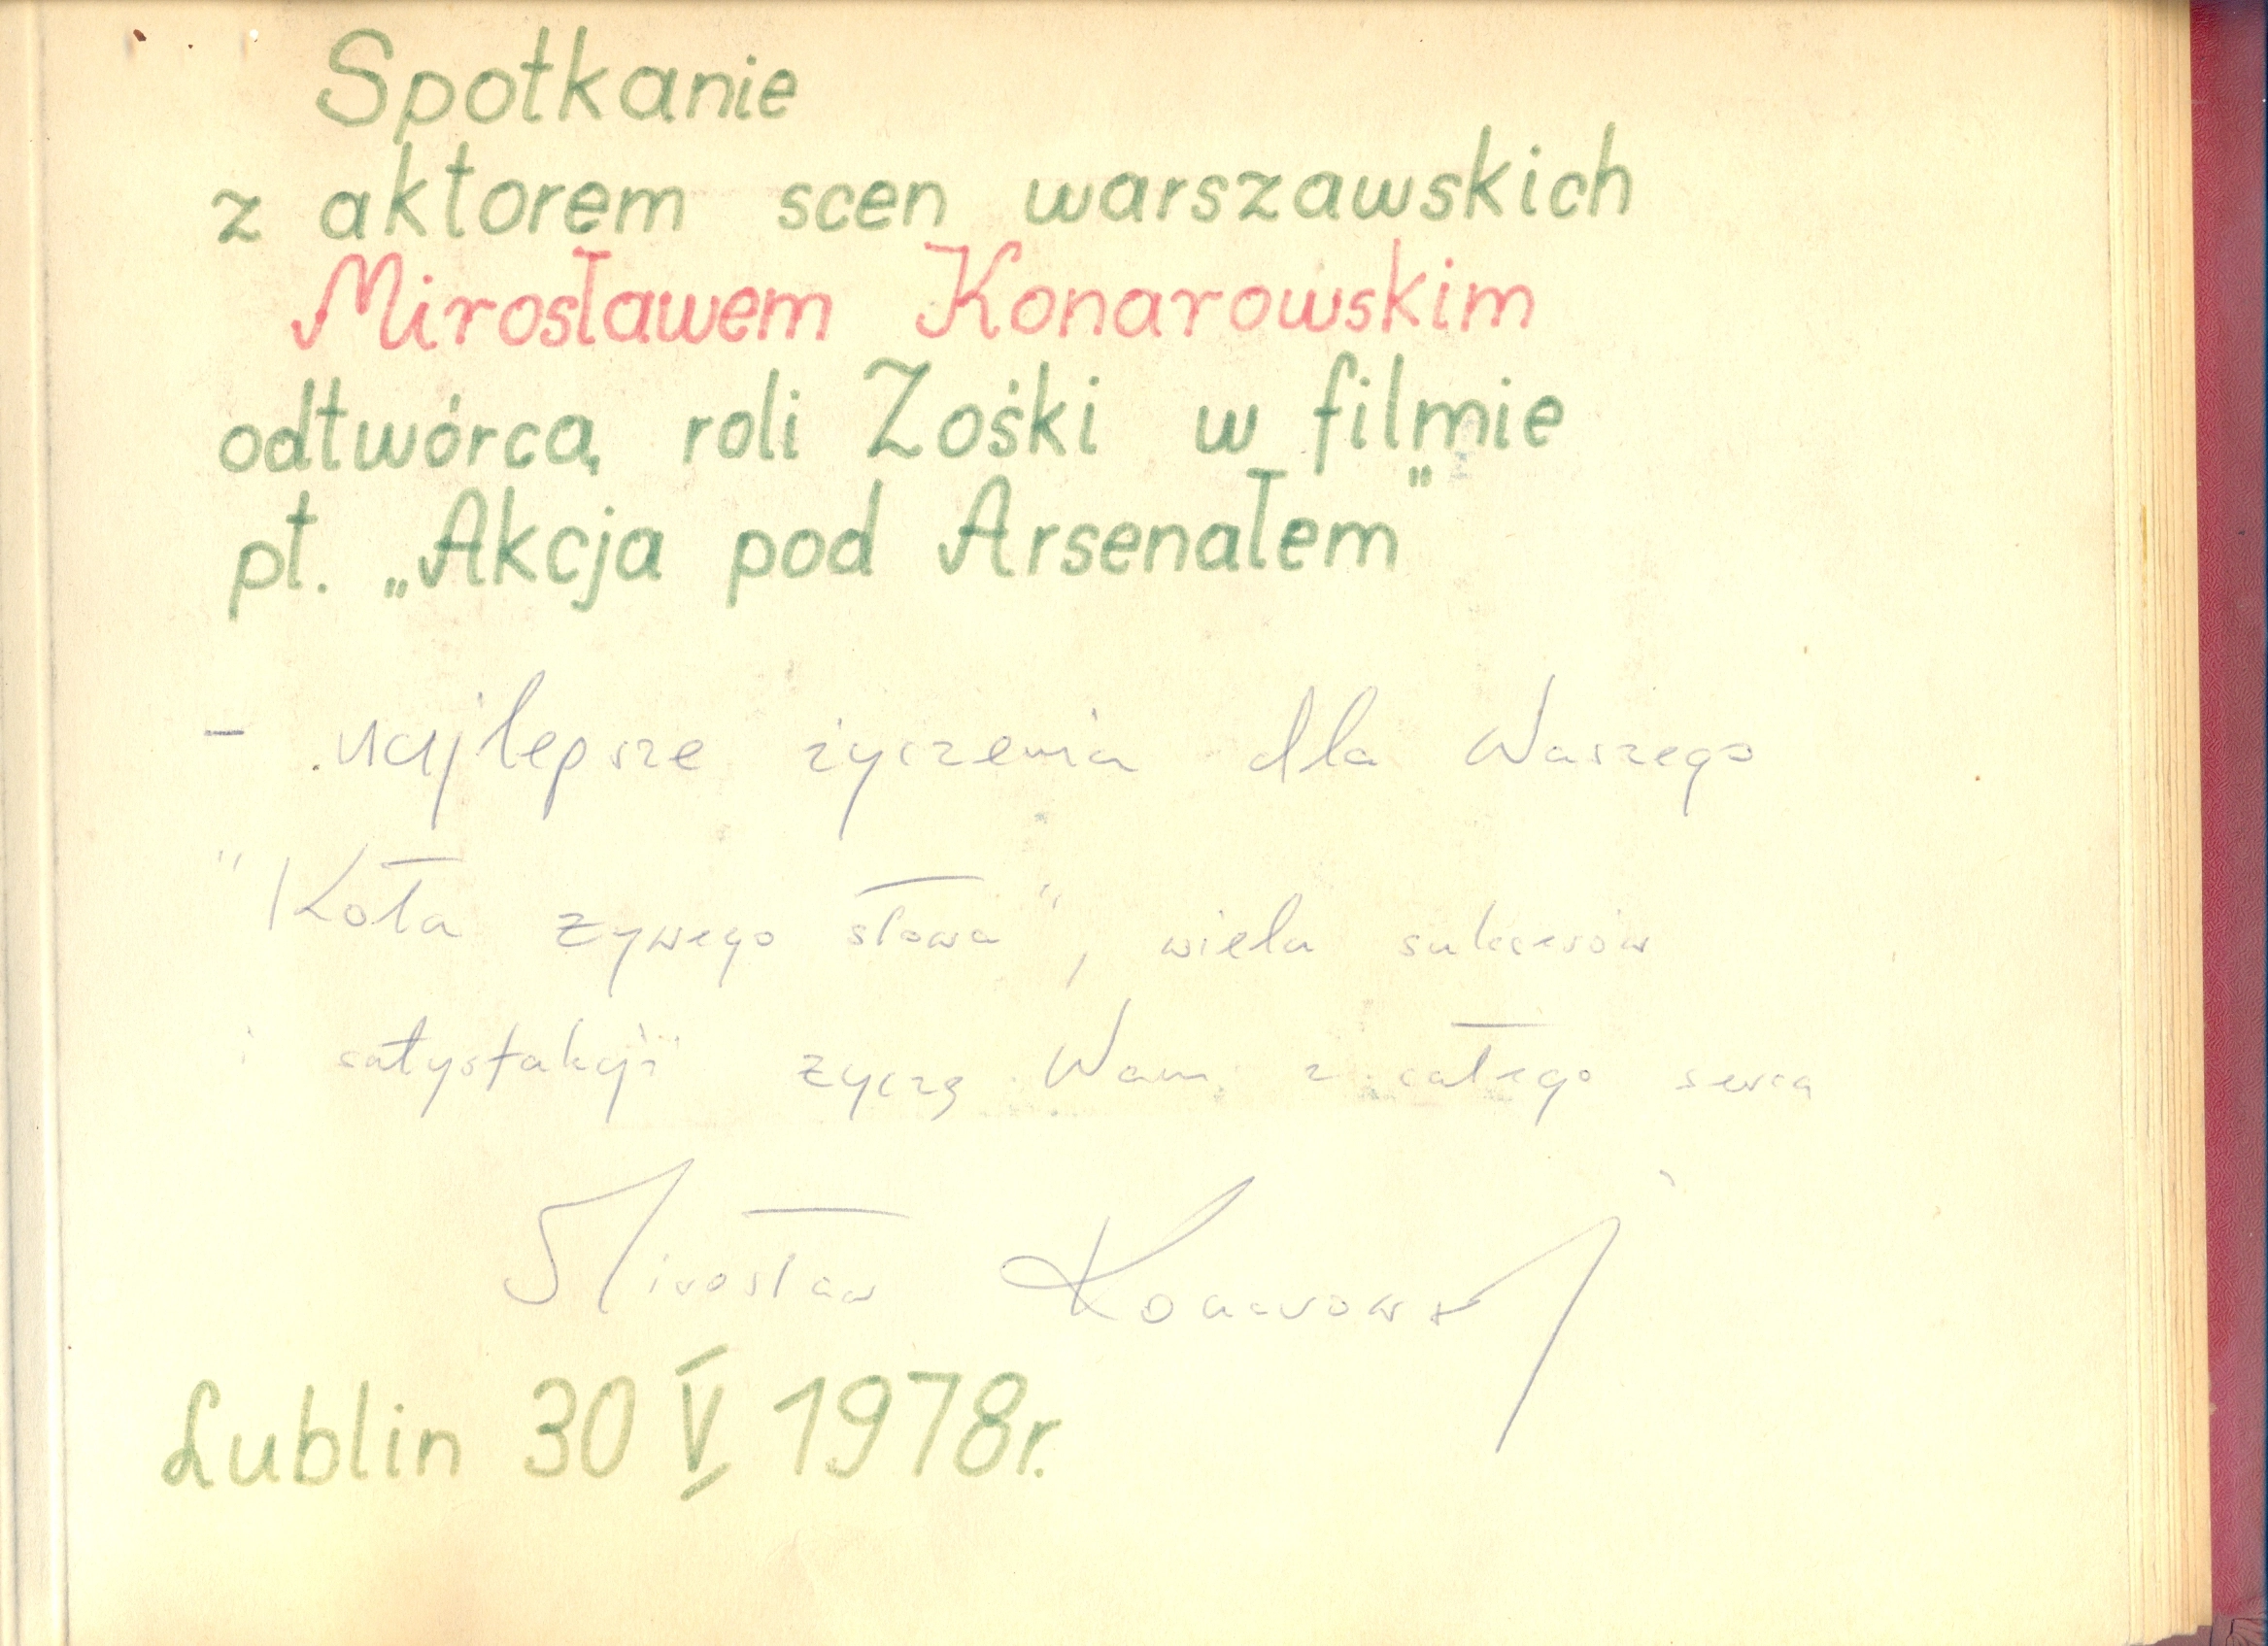 Spotkanie
z aktorem scen warszawskich
Mirosławem Konarowskim
odtwórcą roli Zośki w filmie
pt. „Akcja pod Arsenałem”
- najlepsze życzenia dla Waszego
"Koła żywego słowa", wiela sukcesów
i satysfakcji życzę Wam z całego serca
Mirosław Konarowski
Lublin 30 V 1978r.